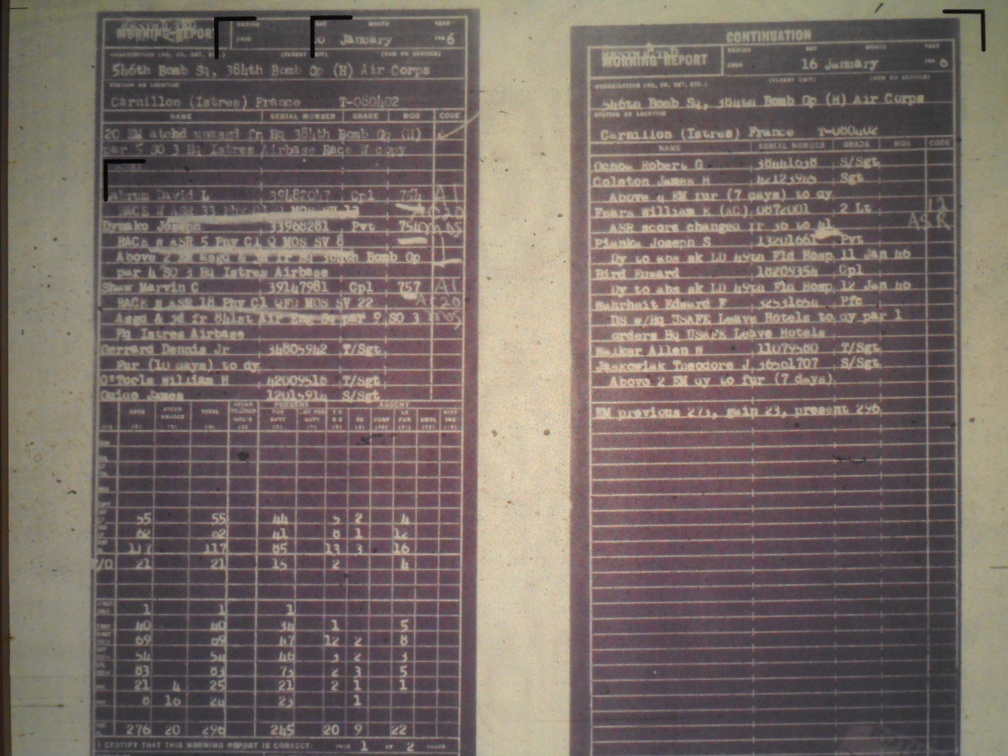 MORNING REPORT
January 6
546th Bomb Sq, 384th Bomb Gp (H) Air Corps
STATION OR LOCATION
Carnillon (Istres) France T-080402
NAME SERIAL NUMBER GRADE MOS CODE
20 EM atchd unasgd fr Hq 384th Bomb Gp (H)
par 5 SO 3 Hq Istres Airbase Race W copy
David L 39482047 Cpl 754 A1
Dymako Joseph 33968281 Pvt 754
RACE W ASR 5 Phy Cl Q MOS SV 8
Above 2 EM asgd & jd fr Hq 384th Bomb Gp
par 4 SO 3 Hq Istres Airbase
Shaw Marvin C 39147981 Cpl 757 A1
RACE W ASR 18 Phy Cl QFD MOS SV 22
Asgd & jd fr 841st Air Eng Sq par 9 SO 3
Hq Istres Airbase
Gerrard Dennis Jr 34805942 T/Sgt
Fur (10 days) to dy
O'Toole William H 42009518 T/Sgt
James 12015914 S/Sgt
PRESENT ABSENT
TOTAL
55 55 44 5 2 4
62 62 41 8 1 12
117 117 85 13 3 16
21 21 15 2 4
1 1 1
40 40 34 1 5
69 69 47 12 2 8
54 54 46 3 2 3
83 83 73 2 3 5
21 4 25 21 2 1 1
8 16 24 23 1
276 20 296 245 20 9 22
I CERTIFY THAT THIS MORNING REPORT IS CORRECT. PAGE 1 OF 2 PAGES
CONTINUATION
MORNING REPORT
16 January 6
546th Bomb Sq, 384th Bomb Gp (H) Air Corps
STATION OR LOCATION
Carnillon (Istres) France T-080402
NAME SERIAL NUMBER GRADE MOS CODE
Ochoa Robert G 38441038 S/Sgt
Colston James H 42123985 Sgt
Above 4 EM fur (7 days) to dy
Fears William E (AC) 0872001 2 Lt 12
ASR score changed fr 30 to 41 ASR
Pianka Joseph S 13201661 Pvt
Dy to abs sk LD 49th Fld Hosp 11 Jan 46
Bird Edward 18209354 Cpl
Dy to abs sk LD 49th Fld Hosp 12 Jan 46
Wahrheit Edward F 32531054 Pfc
DS w/Hq USAFE Leave Hotels to dy par 1
orders Hq USAFE Leave Hotels
Allen W 11079580 T/Sgt
Jaskowiak Theodore J 36561707 S/Sgt
Above 2 EM dy to fur (7 days)
EM previous 273, gain 23, present 296